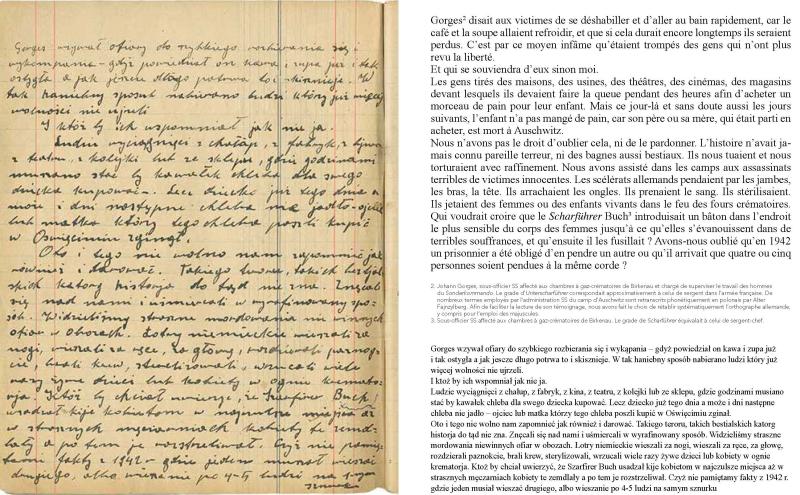 Gorges wzywał ofiary do szybkiego rozbierania się i
wykąpania – gdyż powiedział on kawa i zupa już i tak
ostygła a jak jeszcze długo potrwa to i skisznieje. W
tak haniebny sposub nabierano ludzi który już więcej
wolności nie ujrzeli
I któż by ich wspomniał jak nie ja.
Ludzie wyciągnięci z chałup, z fabryk, z kina,
z teatru, z kolejki lub ze sklepu, gdzie godzinami
musiano stać by kawałek chleba dla swego
dziecka kupować. Lecz dziecko już tego dnia a
może i dni następne chleba nie jadło – ojciec
lub matka który tego chleba poszli kupić
w Oświęcimiu zginął.
Oto i tego nie wolno nam zapomnieć jak
również i darować. Takiego teroru, takich bestjal-
skich katorg historja do tąd nie zna. Znęcali
się nad nami i uśmiercali w wyrafinowany spo-
sób. Widzieliśmy straszne mordowania niewinnych
ofiar w obozach. Łotry niemieckie wieszali za
nogi, wieszali za ręce, za głowy, rozdzierali paznog-
cie, brali krew, sterylizowali, wrzucali wiele
razy żywe dzieci lub kobiety w ognie kremato-
rja. Któż by chciał uwierzyć, że Szarfirer Buch
usadzał kije kobietom w najczulsze miejsca aż
w strasznych męczarniach kobiety te zemd-
lały a po tem je rozstrzeliwał. Czyż nie pamię-
tamy fakty z 1942 – gdzie jeden musiał wieszać
drugiego, albo wieszanie po 4-5 ludzi na samym
sznurku
Gorges² disait aux victimes de se déshabiller et d'aller au bain rapidement, car le
café et la soupe allaient refroidir, et que si cela durait encore longtemps ils seraient
perdus. C'est par ce moyen infâme qu'étaient trompés des gens qui n'ont plus
revu la liberté.
Et qui se souviendra d'eux sinon moi.
Les gens tirés des maisons, des usines, des théâtres, des cinémas, des magasins
devant lesquels ils devaient faire la queue pendant des heures afin d'acheter un
morceau de pain pour leur enfant. Mais ce jour-là et sans doute aussi les jours
suivants, l'enfant n'a pas mangé de pain, car son père ou sa mère, qui était parti en
acheter, est mort à Auschwitz.
Nous n'avons pas le droit d'oublier cela, ni de le pardonner. L'histoire n'avait ja-
mais connu pareille terreur, ni des bagnes aussi bestiaux. Ils nous tuaient et nous
torturaient avec raffinement. Nous avons assisté dans les camps aux assassinats
terribles de victimes innocentes. Les scélérats allemands pendaient par les jambes,
les bras, la tête. Ils arrachaient les ongles. Ils prenaient le sang. Ils stérilisaient.
Ils jetaient des femmes ou des enfants vivants dans le feu des fours crématoires.
Qui voudrait croire que le Scharführer Buch³ introduisait un bâton dans l'endroit
le plus sensible du corps des femmes jusqu'à ce qu'elles s'évanouissent dans de
terribles souffrances, et qu'ensuite il les fusillait ? Avons-nous oublié qu'en 1942
un prisonnier a été obligé d'en pendre un autre ou qu'il arrivait que quatre ou cinq
personnes soient pendues à la même corde ?
2. Johann Gorges, sous-officier SS affecté aux chambres à gaz-crématoires de Birkenau et chargé de superviser le travail des hommes
du Sonderkommando. Le grade d'Unterscharführer correspondait approximativement à celui de sergent dans l'armée française. De
nombreux termes employés par l'administration SS du camp d'Auschwitz sont retranscrits phonétiquement en polonais par Alter
Fajnzylberg. Afin de faciliter la lecture de son témoignage, nous avons fait le choix de rétablir systématiquement l'orthographe allemande,
y compris pour l'emploi des majuscules.
3. Sous-officier SS affecté aux chambres à gaz-crématoires de Birkenau. Le grade de Scharführer équivalait à celui de sergent-chef.
Gorges wzywał ofiary do szybkiego rozbierania się i wykąpania – gdyż powiedział on kawa i zupa już
i tak ostygła a jak jescze długo potrwa to i skisznieje. W tak haniebny sposub nabierano ludzi który już
więcej wolności nie ujrzeli.
I któż by ich wspomniał jak nie ja.
Ludzie wyciągnięci z chałup, z fabryk, z kina, z teatru, z kolejki lub ze sklepu, gdzie godzinami musiano
stać by kawałek chleba dla swego dziecka kupować. Lecz dziecko już tego dnia a może i dni następne
chleba nie jadło – ojciec lub matka którzy tego chleba poszli kupić w Oświęcimiu zginął.
Oto i tego nie wolno nam zapomnieć jak również i darować. Takiego teroru, takich bestialskich katorg
historja do tąd nie zna. Znęcali się nad nami i uśmiercali w wyrafinowany sposób. Widzieliśmy straszne
mordowania niewinnych ofiar w obozach. Lotry niemieckie wieszali za nogi, wieszali za ręce, za głowy,
rozdzierali paznokcie, brali krew, sterylizowali, wrzucali wiele razy żywe dzieci lub kobiety w ognie
krematorja. Ktoż by chcał uwierzyć, że Szarfirer Buch usadzał kije kobietom w najczulsze miejsca aż w
strasznych męczarniach kobiety te zemdlały a po tem je rozstrzeliwał. Czyż nie pamiętamy fakty z 1942 r.
gdzie jeden musiał wieszać drugiego, albo wieszanie po 4-5 ludzi na samym sznurku